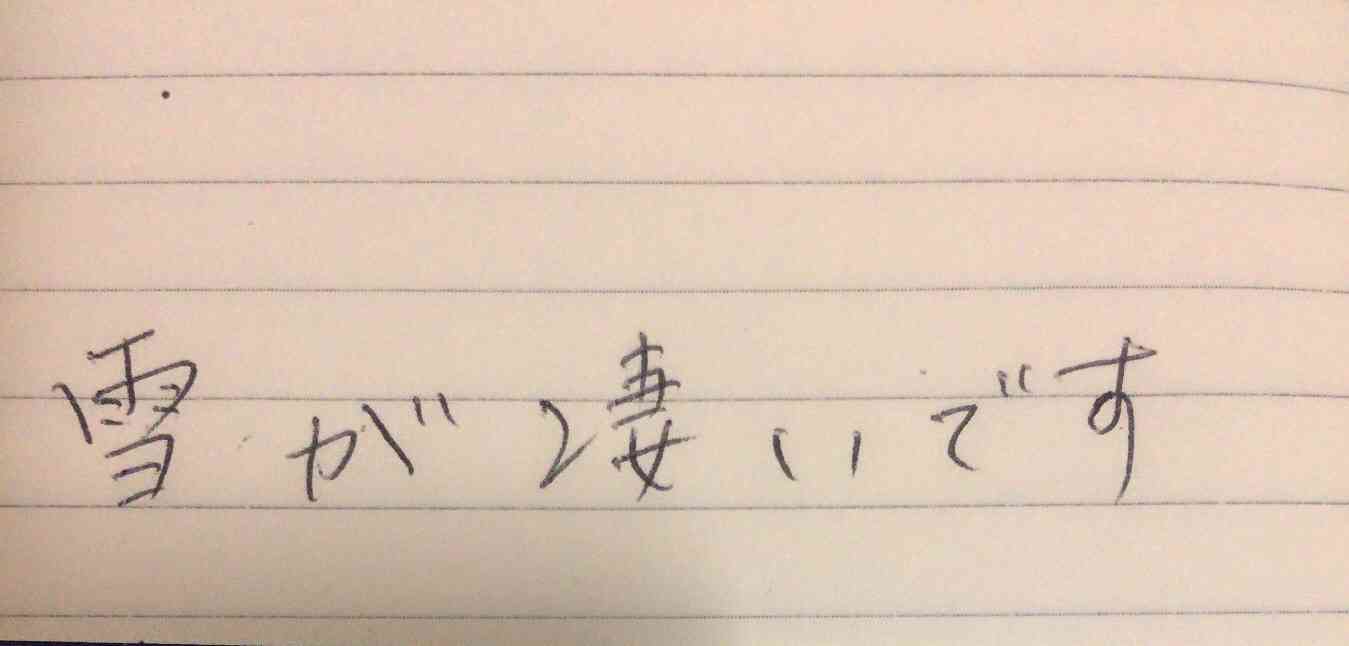 雪が凄いです